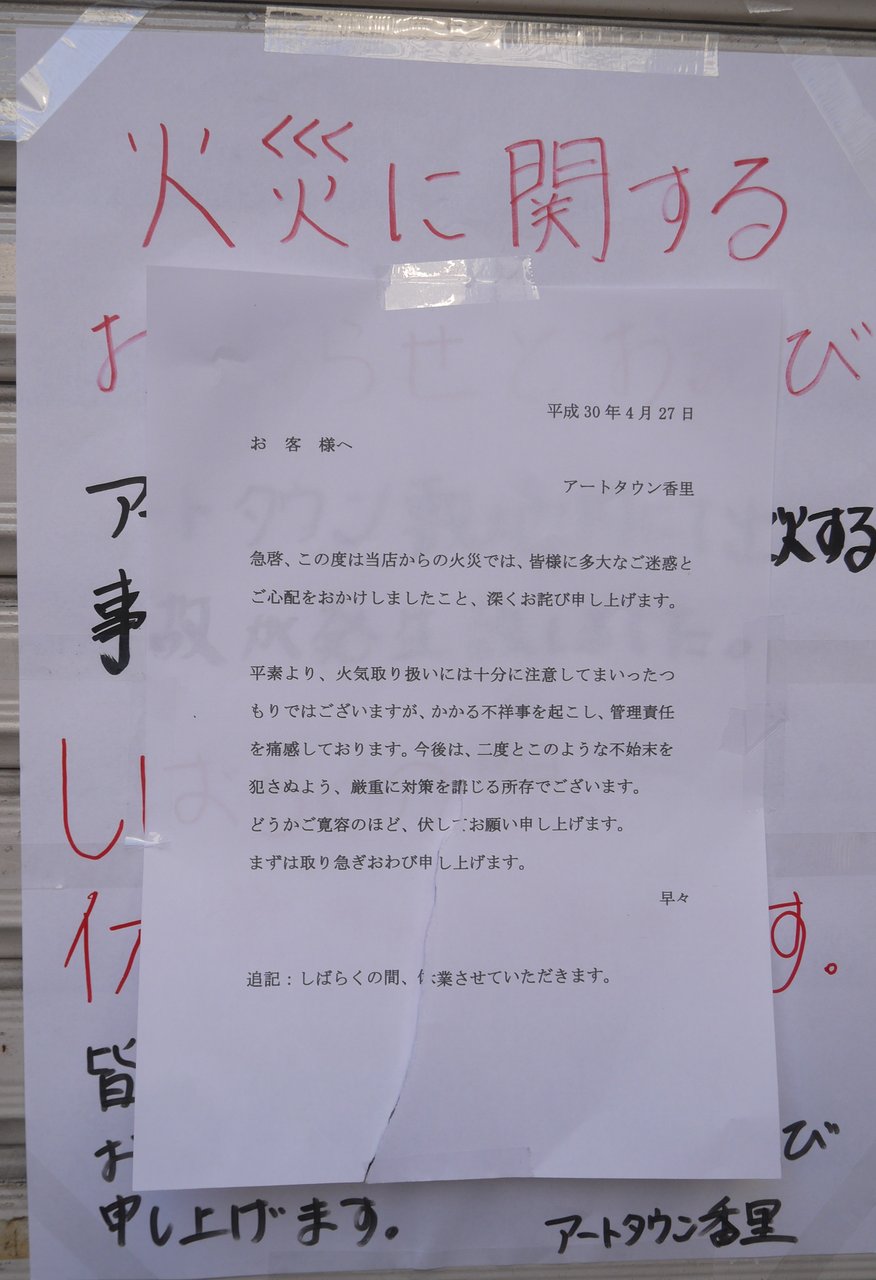 火災に関する
お らせとおわび
ア
する
事
平成30年4月27日
お 客 様へ
アートタウン香里
急啓、この度は当店からの火災では、皆様に多大なご迷惑と
ご心配をおかけしましたこと、深くお詫び申し上げます。
平素より、火気取り扱いには十分に注意してまいったつ
もりではございますが、かかる不祥事を起こし、管理責任
を痛感しております。今後は、二度とこのような不始末を
犯さぬよう、厳重に対策を講じる所存でございます。
どうかご寛容のほど、伏してお願い申し上げます。
まずは取り急ぎおわび申し上げます。
早々
追記：しばらくの間、休業させていただきます。
し
す。
皆
お
び
申し上げます。
アートタウン香里